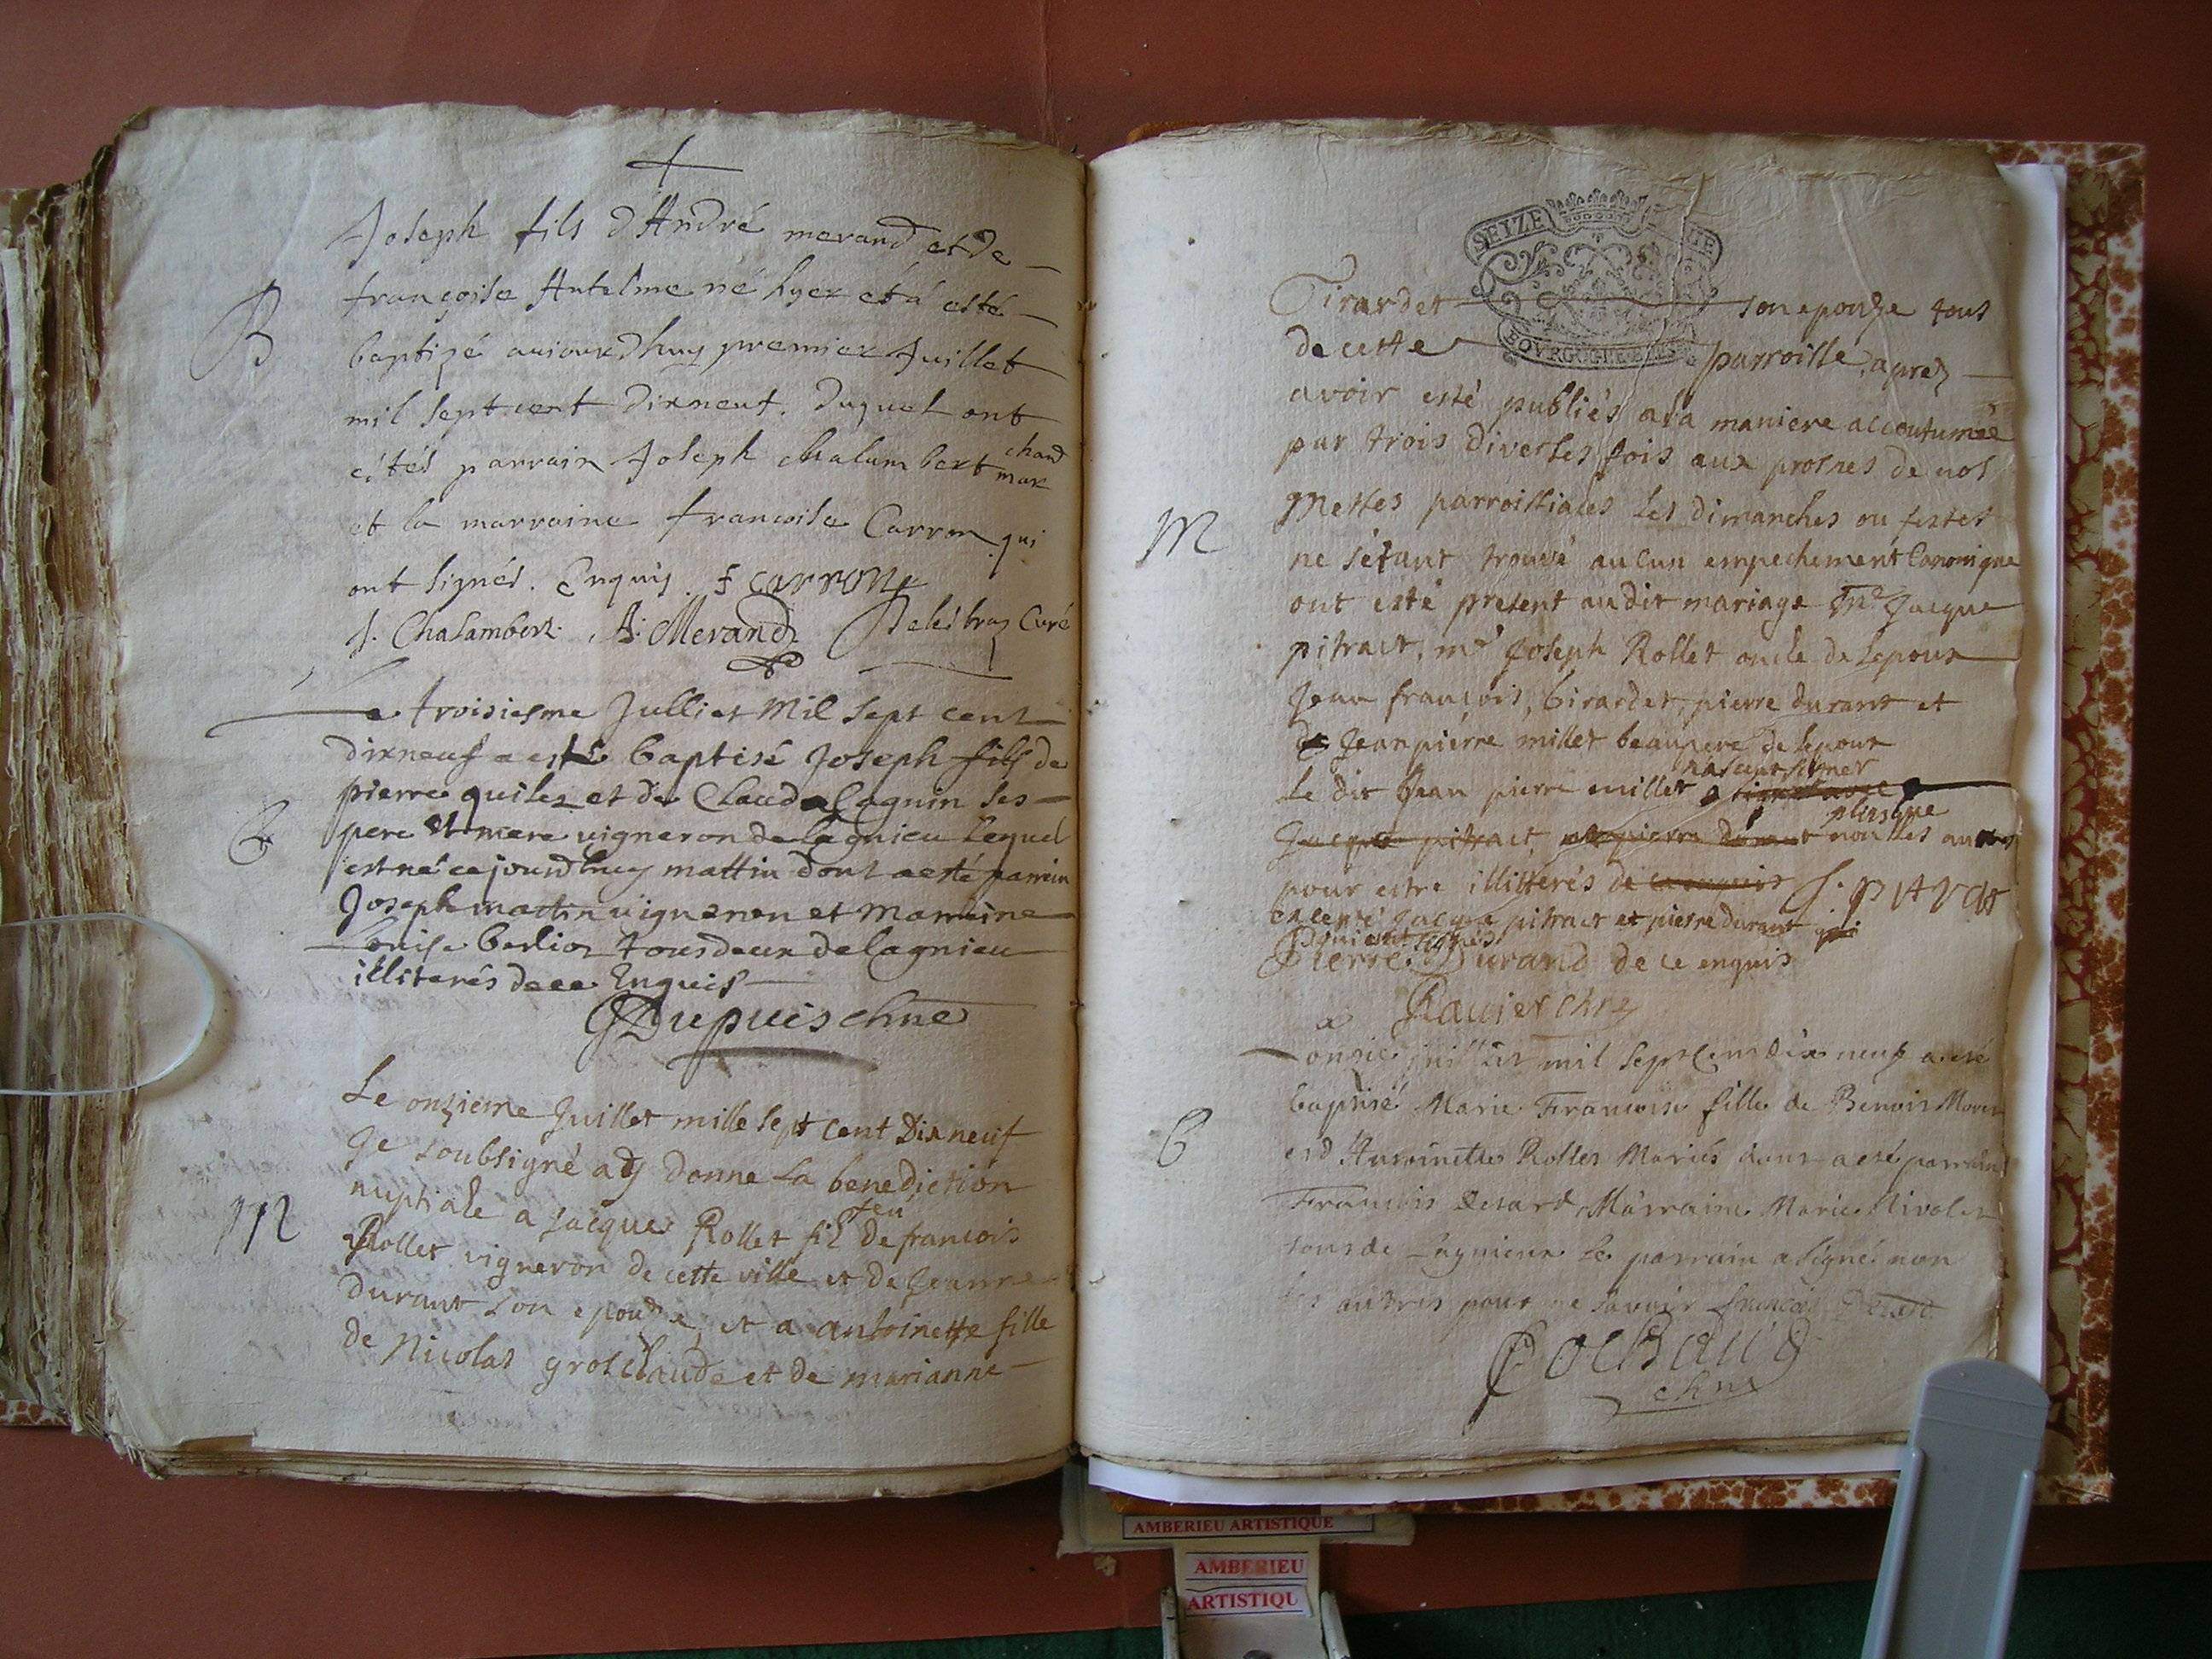 Joseph fils d'André merand et de
françoise Antelme né hyer et a esté
B
baptizé aujourdhuy premier Juillet
mil sept cent dixneuf. duquel ont
étés parrain Joseph chalambert marchand
et la marraine francoise Carron qui
ont signés. Enquis. f carron
J. Chalambert. A. Merand Curé
Le troisiesme Julliet Mil sept cent
dixneuf a esté baptisé Joseph fils de
pierre quiles et de Clauda Cagnin ses
B
pere et mere vigneron de lagnieu lequel
est né ce jourdhuy mattin dont a esté parrain
Joseph martin vigneron et Marraine
Louise berlioz tous deux de lagnieu
illiterés de ce Enquis
Dupuis chne
Le onzieme Juillet mille sept cent Dixneuf
Je soubsigné aÿ donne la benediction
M
nuptiale a jacques Rollet fil de feu francois
Rollet vigneron de cette ville et de jeanne
durant son epouse, et a antoinette fille
de Nicolas grosclaude et de marianne
SEIZE
BOVRGOGNE
Girardet son epouze tous
de cette parroisse, aprez
avoir esté publiés a la maniere accoutumée
par trois diverses fois aux prosnes de nos
M
Messes parroissiales les dimanches ou festes
ne s'étant trouvé aucun empechement Canonique
ont esté present audit mariage Me Jacque
pitract, me Joseph Rollet oncle de lepoux
Jean françois, Girardet, pierre durant et
de Jean pierre millet beaupere de lepoux
Le dit Jean pierre millet n'a sceut signer
Jacque pitract, et pierre durant non plus que les autres
pour estre illitterés de ce enquis
excepté Jacque pitract et pierre durant qui
Pierre Durand de ce enquis
Ravier chne
Le onzie juillet mil sept cens dix neuf a eté
baptisé Marie Francoise fille de Benoit
B
et d'Antoinette Rollet Mariés dont a eté parrain
Francois Derard, Marraine Marie Nivolet
tous de Lagnieu le parrain a signé non
les autres pour ne savoir francois Derard
Cochaud
chne
AMBERIEU ARTISTIQUE
AMBERIEU
ARTISTIQU